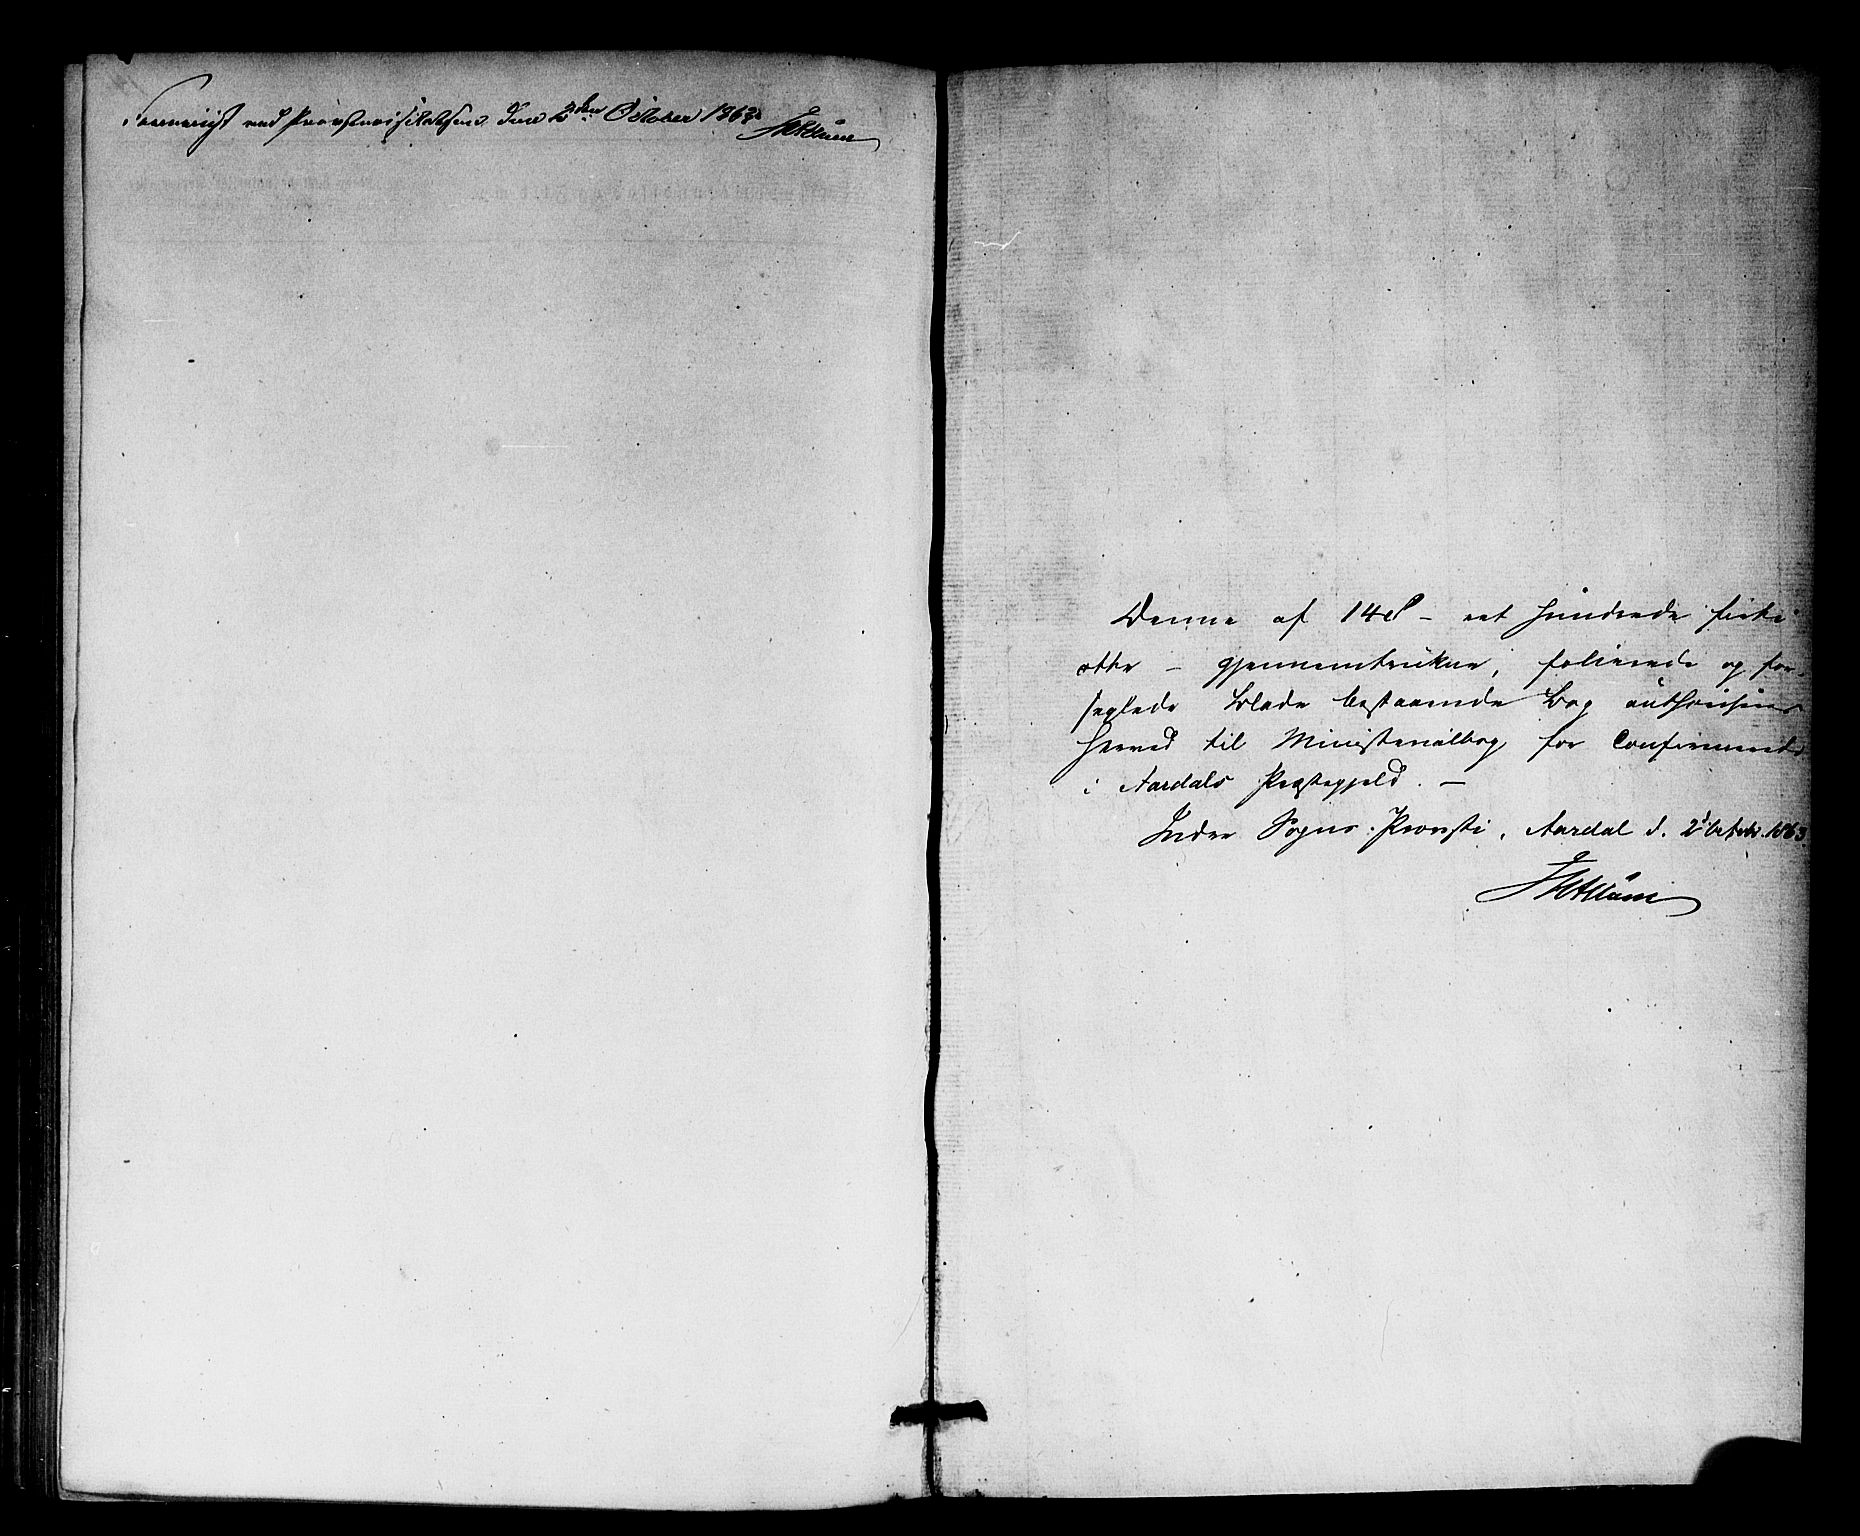 Foreviist ved Provstevisitatsen den 2den October 1863.
Denne af 148 – eet hundrede firti
otte – gjennemtrukne, folierede og for-
seglede Blade bestaaende Bog authoriseres
herved til Ministerialbog for Confirmerede
i Aardals Præstegjeld. –
Indre Sogns Provsti, Aardal d. 2d Octobr. 1863